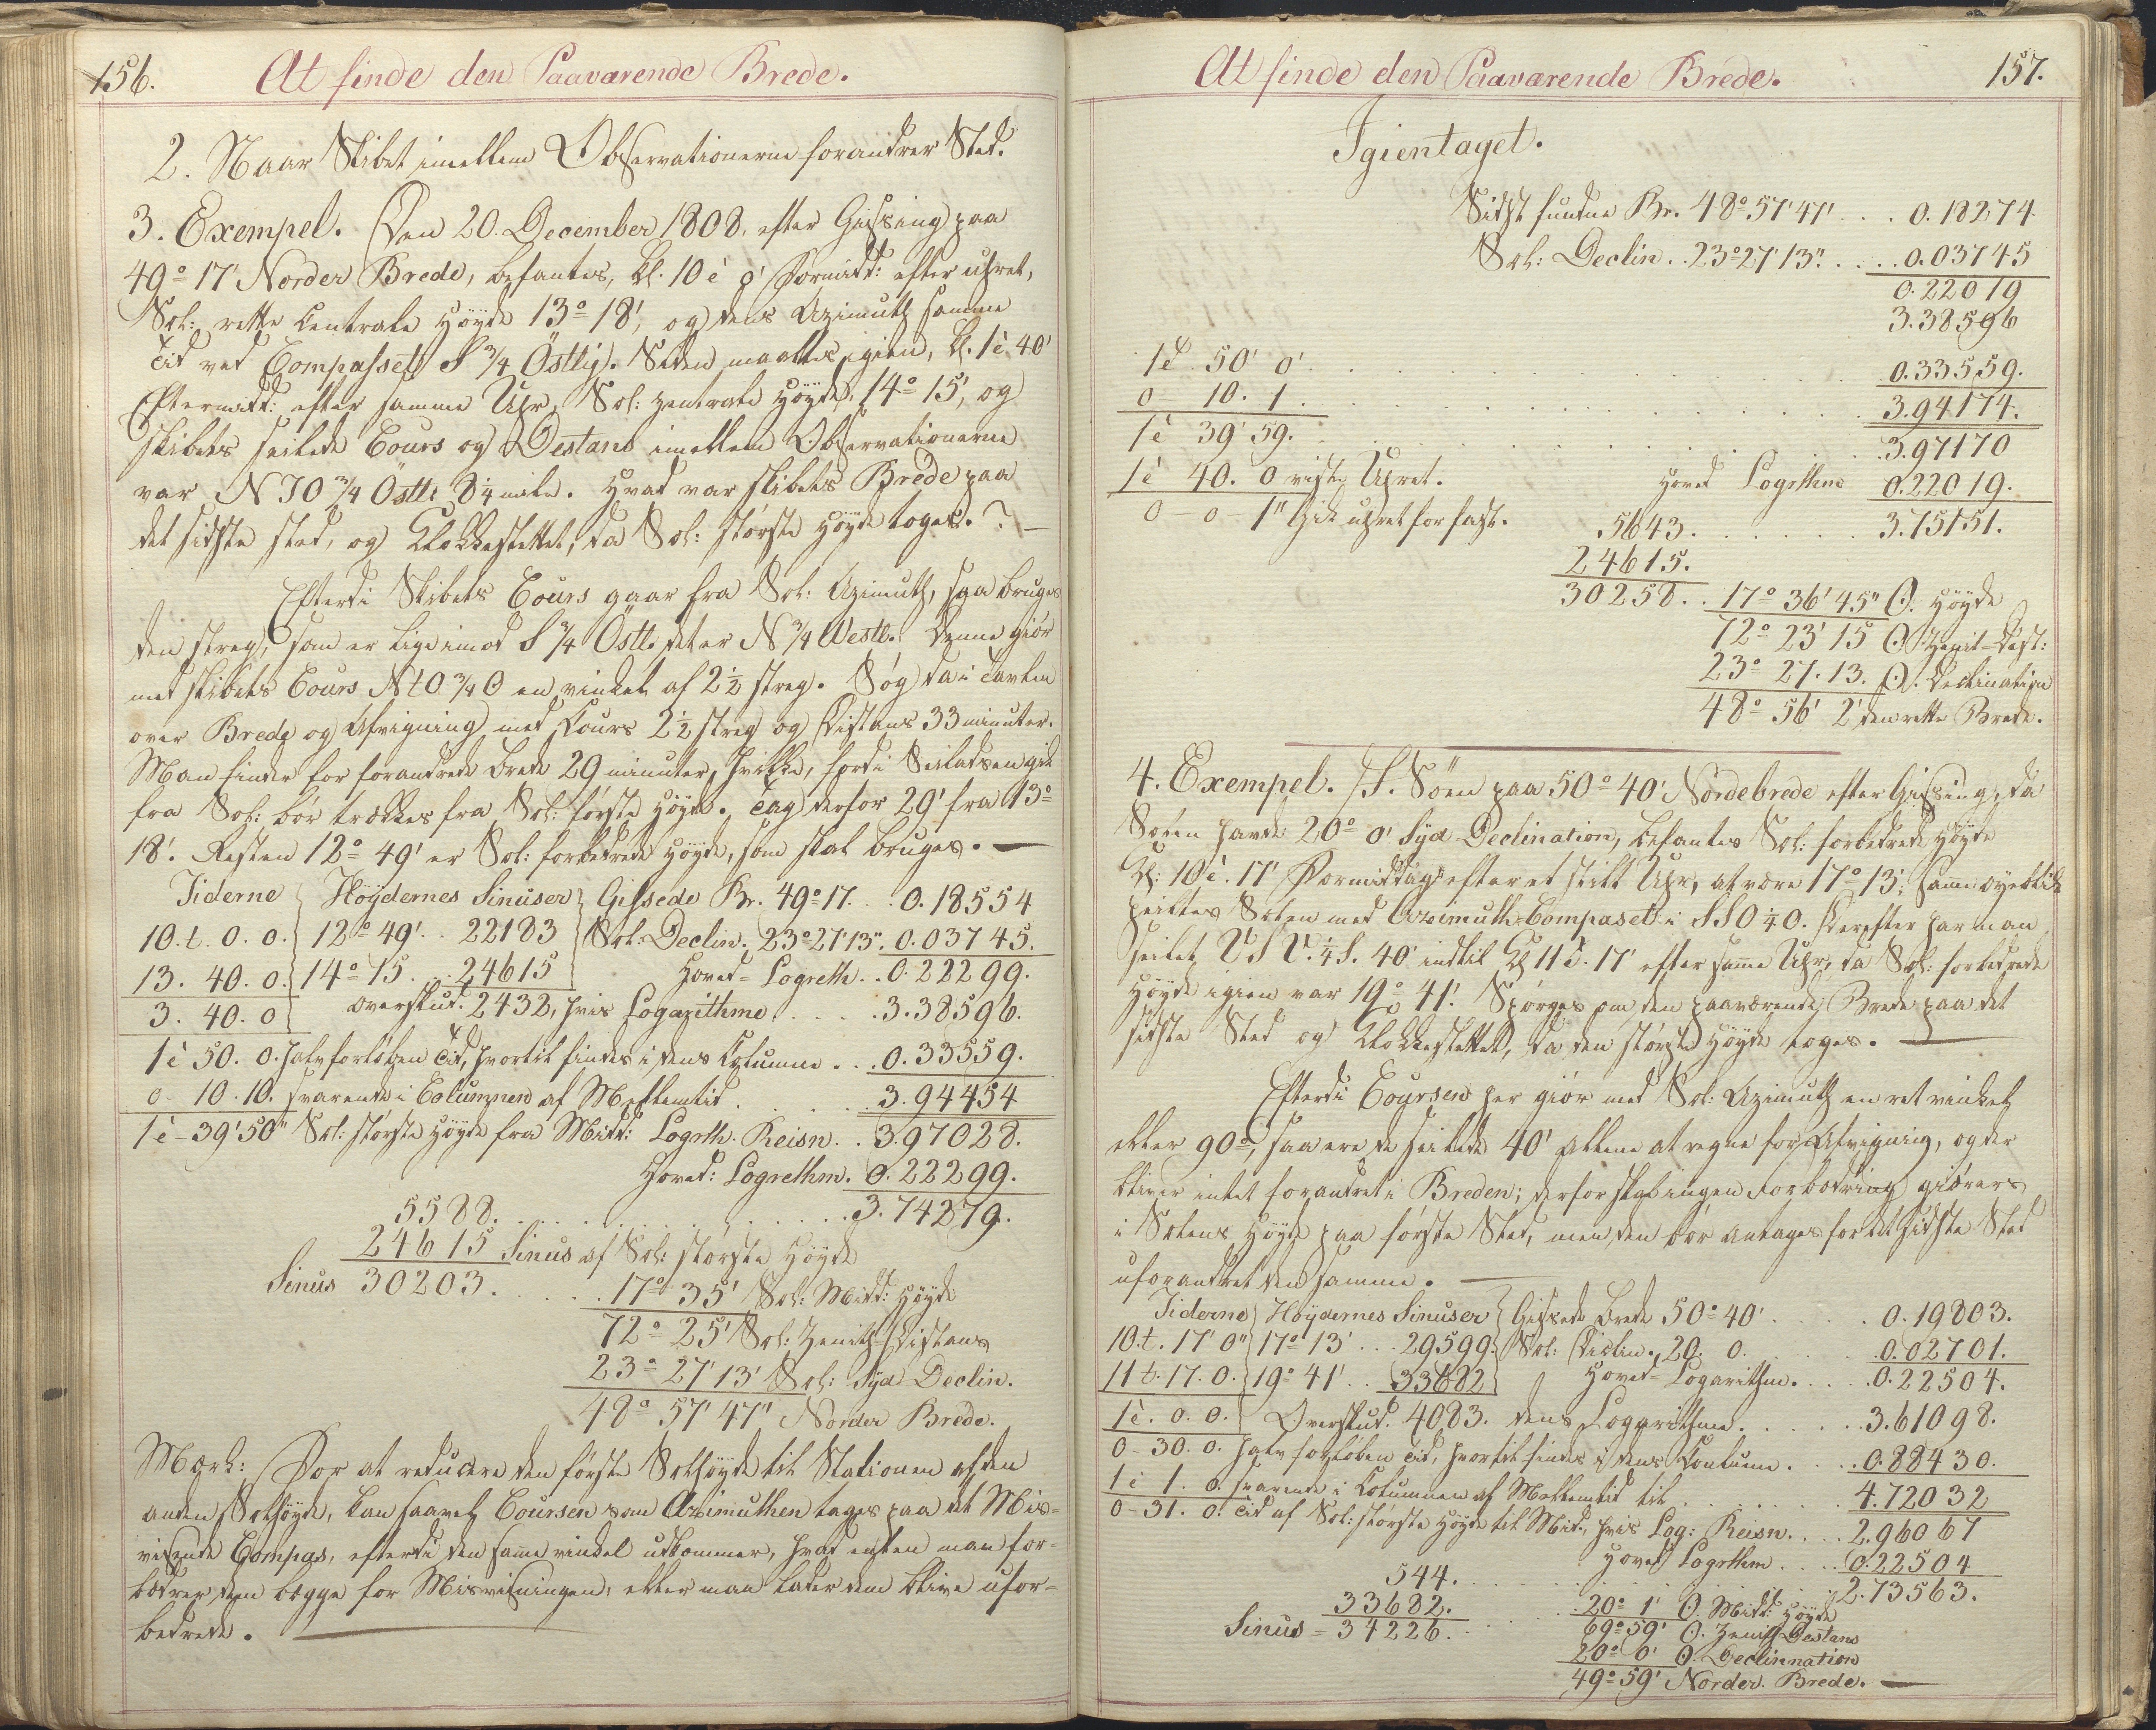 156.
At finde den Paaværende Brede.
2. Naar Skibet imellem Observationerne forandrer Sted.
3. Exempel. Den 20. December 1808. efter Gisning paa
49° 17' Norder Brede, befantes, Kl. 10è 0' Formidd: efter uhret,
Sol: rette Centrale Höyde 13° 18', og dens Azimuth samme
Tid ved Compasset S 3/4 Östlig. Siden maaltes igien, Kl. 1è 40'
Eftermidd: efter samme Uhr, Sol: Zentrale Höyde, 14° 15', og
skibets seilede Cours og Destans imellem Observationerne
var N T O 3/4 Östl: 8 1/4 mile. Hvad var skibets Brede paa
det sidste sted, og Klokkeslettet, da Sol: störste Höyde toges.? —
Efterdi Skibets Cours gaar fra Sol: Azimuth, saa bruges
den streg, som er lige imod S 3/4 Östl. det er N 3/4 Westl. denne giör
med skibets Cours N t O 3/4 O en vinkel af 2 1/2 streg. Søg da i Tavlen
over Brede og Afvigning med Cours 2 1/2 streg og Distans 33 minuter.
Man finder for forandrede Brede 29 minuter, hvilke, fordi Seiladsen gik
fra Sol: bör trækkes fra Sol: förste Höyde. Tag derfor 29' fra 13°
18'. Resten 12° 49' er Sol: forbedrede Höyde, som skal bruges. —
Tiderne Höydernes Sinuser Gissede Br. 49° 17. . 0.18554
10. t. 0. 0. 12° 49' . . 22183 Sol: Declin. 23° 27' 13". 0.03745.
13. 40. 0. 14° 15 . . 24615 Hoved=Logreth. . 0.22299.
3. 40. 0 Overskud. 2432, hvis Logarithme . . . . 3.38596.
1è 50. 0. halv forløben Tid, hvortil findes i dens Columne . . 0.33559.
0- 10. 10. svarende i Columnen af Mellemtid . . . . . 3.94454
1è - 39' 50" Sol: störste Höyde fra Midd: Logrth. Reisn. . 3.97028.
Hoved: Logrethm. 0.22299.
5588. . . . . . . . . . . 3.74279.
24615 Sinus af Sol: störste Höyde
Sinus 30203. . . . . 17° 35' Sol: Midd: Höyde
72° 25' Sol: Zenith=Distans
23° 27' 13' Sol: Syd Declin.
48° 57' 47" Norder Brede.
Mærk: For at reducere den förste Solhöyde til Stationen af den
anden Solhöyde, kan saavel Coursen som Azimuthen tages paa det Mis=
visende Compas, efterdi den same vinkel udkommer, hvad enten man for=
bedrer dem begge for Misvisningen, eller man lader dem blive ufor=
bedrede. —
At finde den Paaværende Brede.
157.
Igientaget.
Sidst fundne Br. 48° 57' 47' . . . 0.18274
Sol: Declin. . 23° 27' 13". . . . 0.03745
0.22019
3.38596
1è. 50' 0' . . . 0.33559.
0 10. 1 . . . 3.94174.
1è 39' 59. . . . 3.97170
1è 40. 0 viste Uhret. Hoved Logrithme 0.22019.
0 - 0 - 1" Gik uhret for fast. 5643. . . . . . 3.75151.
24615.
30258. . 17° 36' 45" ☉. Höyde
72° 23' 15 ☉ Zenit=Dest:
23° 27. 13. ☉. Declination
48° 56' 2' den rette Brede.
4. Exempel. I. Söen paa 50° 40' Nordebrede efter Gisning, da
Solen havde 20° 0' Syd Declination, befantes Sol: forbedrede Höyde
Kl: 10è. 17' Formiddag efter et stilt Uhr, at være 17° 13', same øyeblik
peiltes Solen med Azimuth=Compaset i SSO 1/4 O. Derefter har man
seilet V S V. 1/4 S. 40' indtil Kl 11è. 17' efter same Uhr, da Sol: forbedrede
Höyde igien var 19° 41'. Spørges om den paaværende Brede paa det
sidste Sted og Klokkeslettet, da den störste Höyde toges. —
Efterdi Coursen her giör med Sol: Azimuth en ret vinkel
eller 90°, saa ere de seilede 40' allene at regne for Afvigning, og der
bliver intet forandret i Breden; derfor skal ingen Forbedring giöres
i Solens Höyde paa förste Sted, men den bör antages for det sidste Sted
uforandret den samme. —
Tiderne Höydernes Sinuser Gissede Brede 50° 40' . . . . 0.19803.
10. t. 17' 0" 17° 13' . . . 29599. Sol: Diclin. 20. 0. . . . 0.02701.
11 t. 17. 0. 19° 41' . . 33682 Hoved=Logarithm. . . . 0.22504.
1è. 0. 0. Overskud. 4083. dens Logarithme. . . . . 3.61098.
0- 30. 0. halv forløben Tid, hvortil findes i dens Coulumne. . . . 0.88430.
1è 1. 0. svarende i Columnen af Mellemtid til . . . . . . 4.72032
0- 31. 0. Tid af Sol: störste Höyde til Mid., hvis Log: Reisn. . . . 2.96067
Hoved Logrthm . . . . 0.22504
544. . . . . . . . 2.73563.
33682. . . . 20° 1' ☉. Midd: Höyde
Sinus = 34226. . . 69° 59' ☉. Zenith Destans
20° 0' ☉. Declinnation
49° 59' Norder. Brede. —